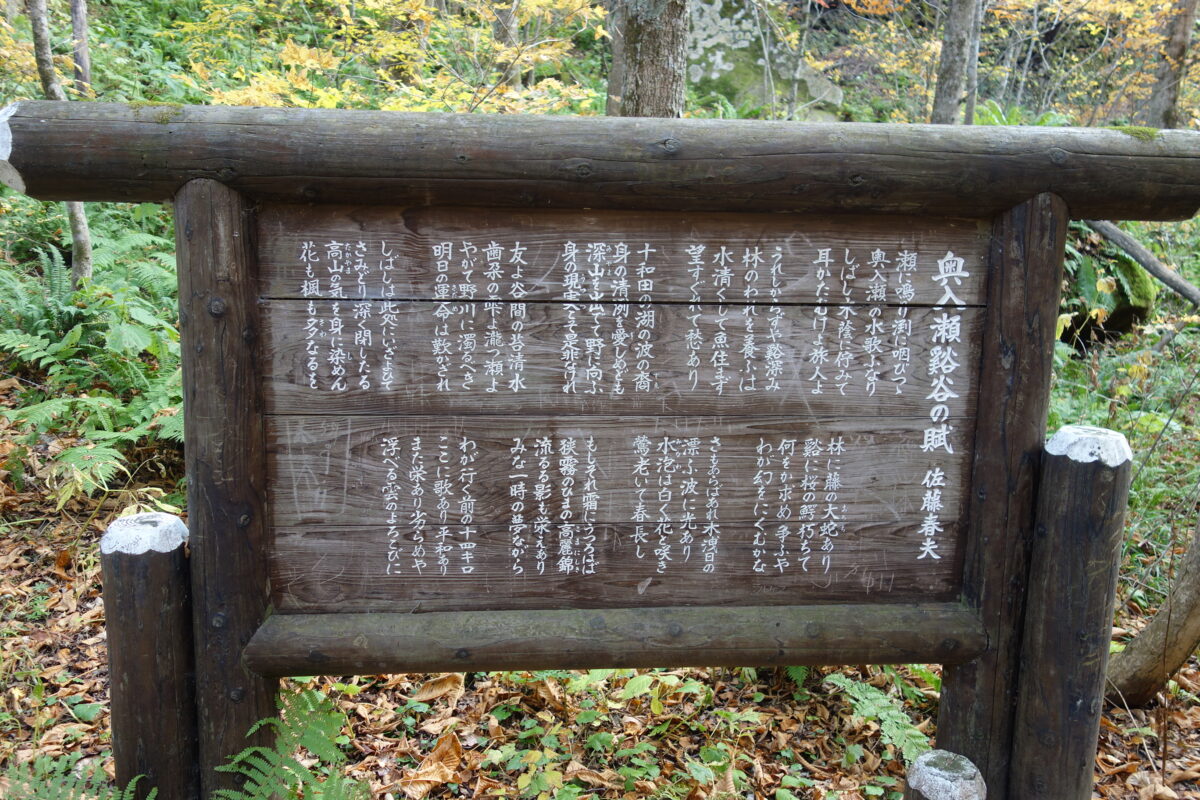 奥入瀬谿谷の賦 佐藤春夫
瀬に鳴り渕に咽びつゝ
奥入瀬の水歌ふなり
しばし木蔭に佇みて
耳かたむけよ旅人よ
うれしからずや谿深み
林のわれを養ふは
水清くして魚住まず
望すぐれて愁あり
十和田の湖の波の裔
身の清冽を愛しめども
深山を出でて野に向ふ
身の現実こそ是非なけれ
友よ谷間の苔清水
歯朶の雫よ瀧つ瀬よ
やがて野川に濁るべき
明日の運命は歎かざれ
しばしは此処にいざよひて
さみどり深く閉したる
高山の気を身に染めん
花も楓も多なるを
林に藤の大蛇あり
谿に桜の鰐朽ちて
何をか求め争ふや
わが幻をにくむかな
さもあらばあれ木洩日の
漂ふ波に光あり
水泡は白く花と咲き
鶯老いて春長し
ももそれ霜にうつろはば
狭霧のひまの高麗錦
流るる影も栄えあり
みな一時の夢ながら
わが行く前の十四キロ
ここに歌あり平和あり
また栄あり劣らめや
浮べる雲のよろこびに